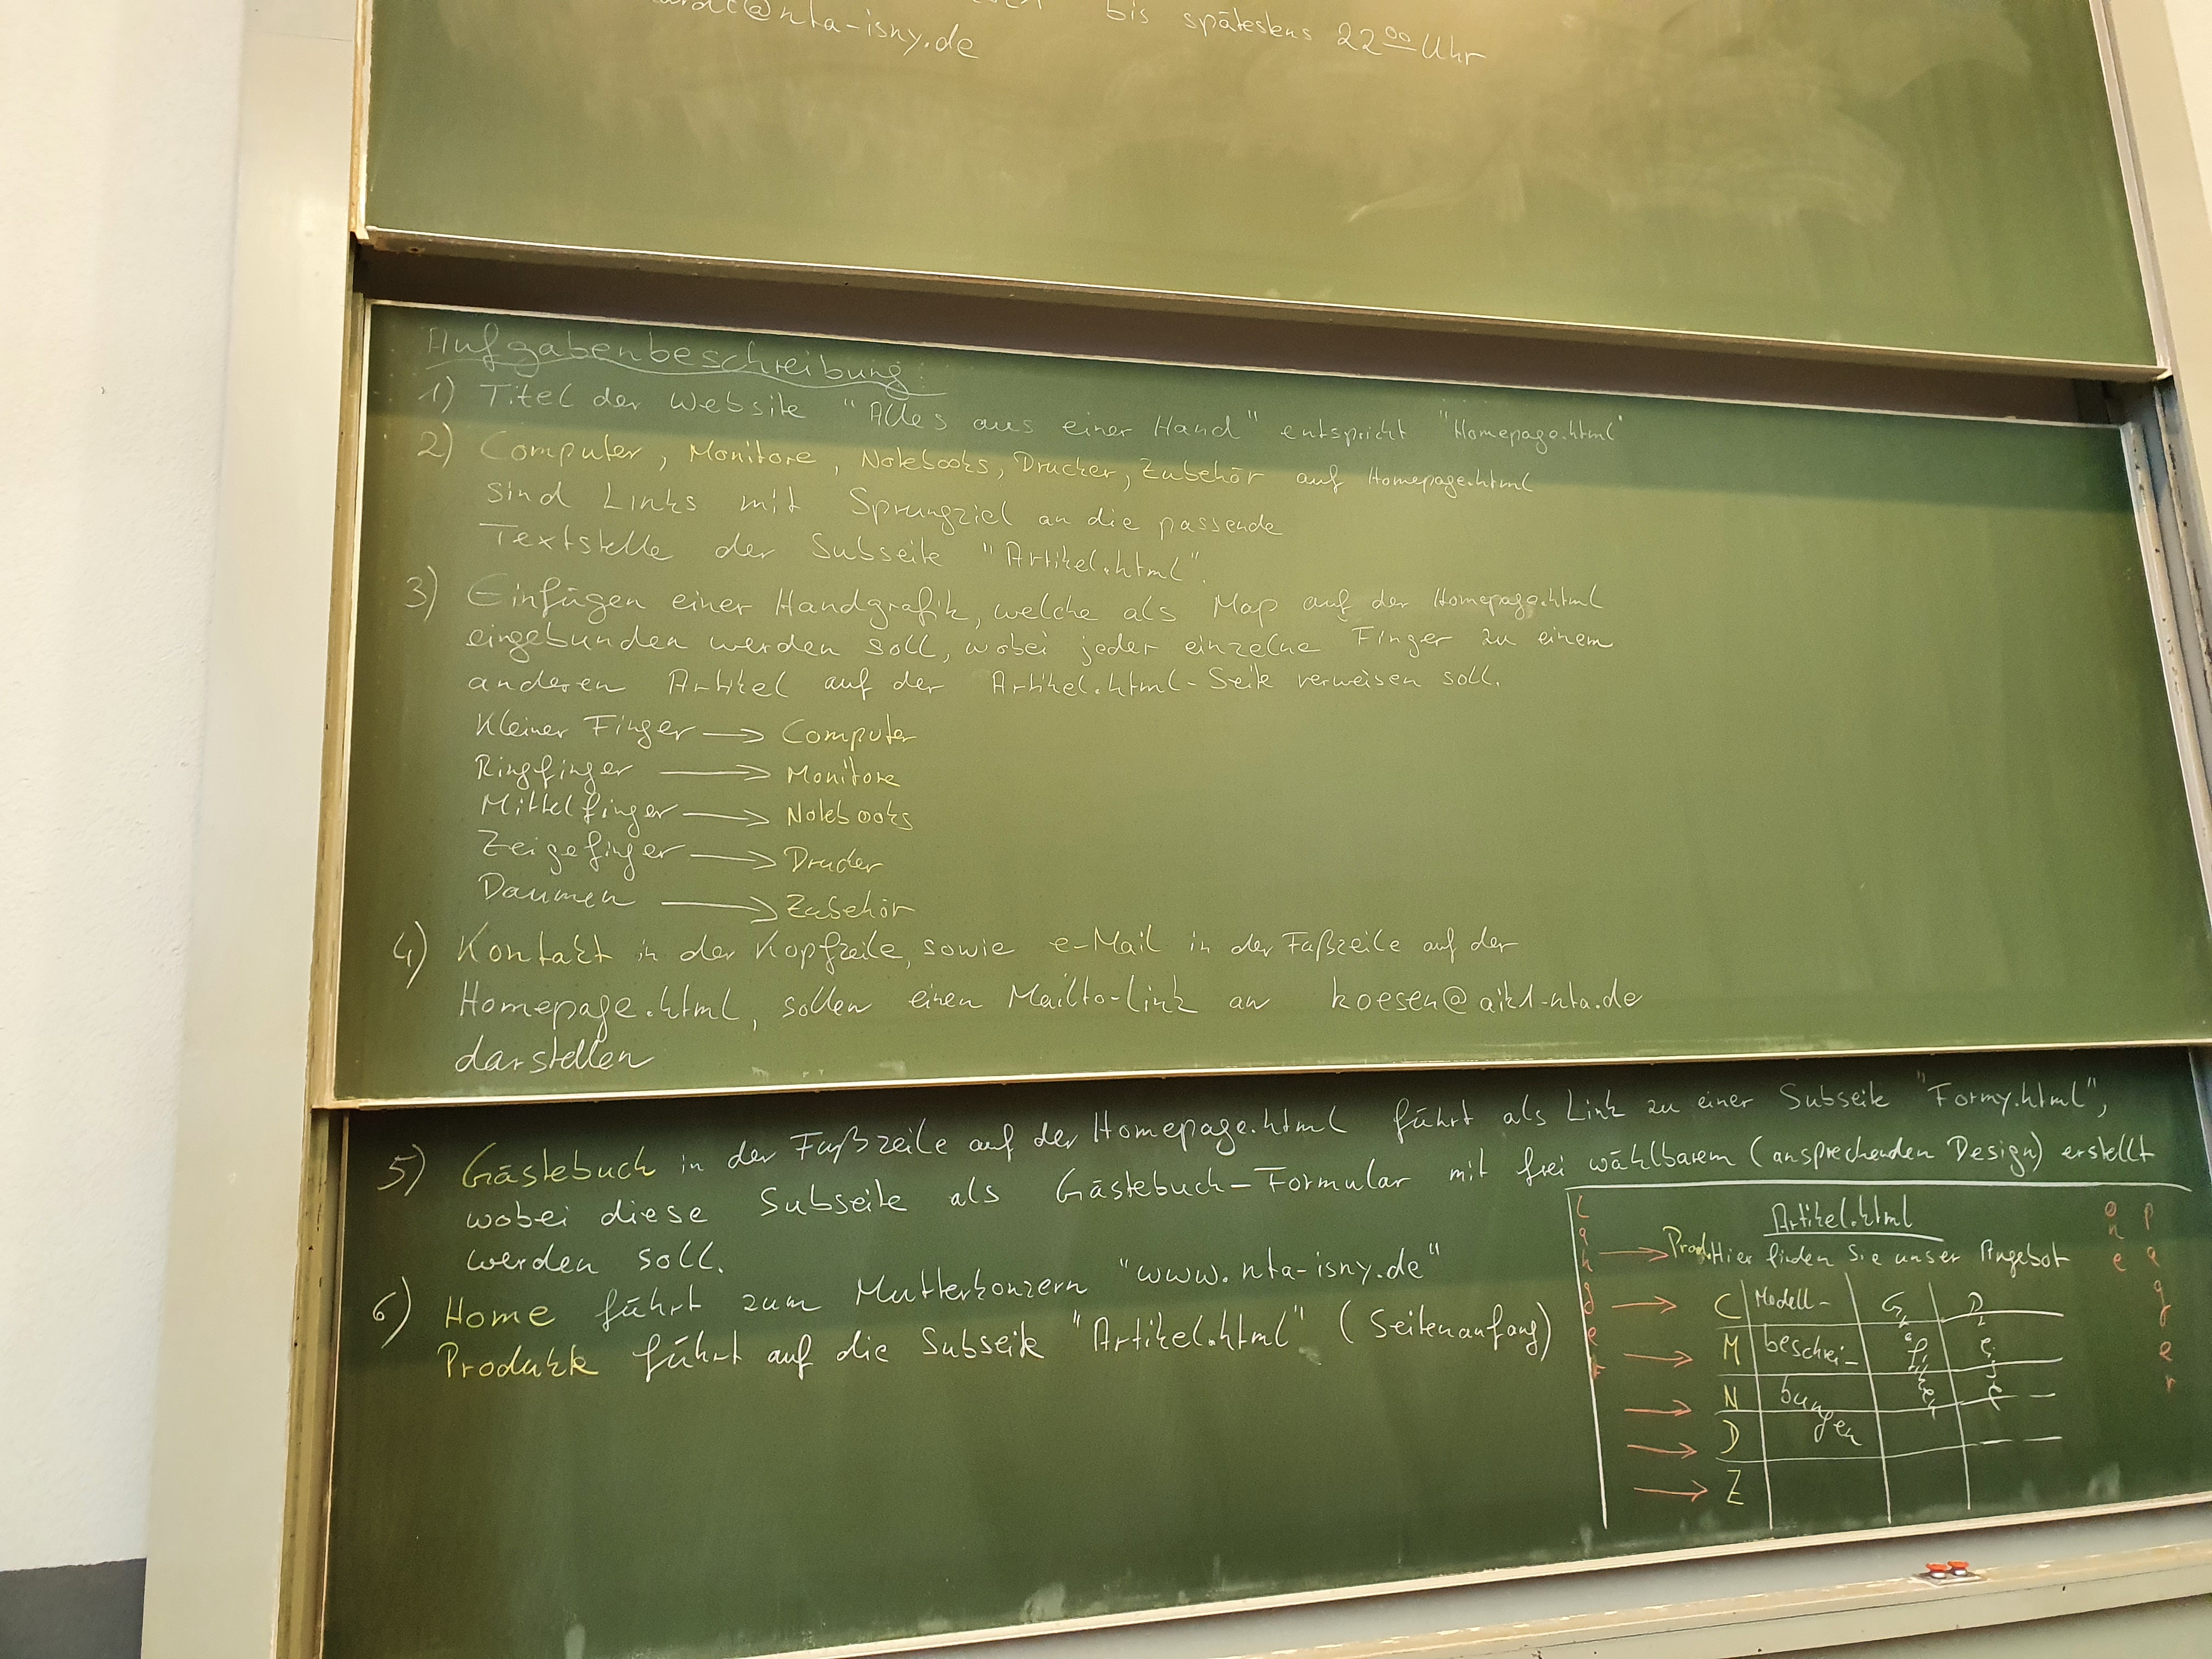 bis spätestens 22⁰⁰ Uhr
@nta-isny.de
Aufgabenbeschreibung:
1) Titel der Website "Alles aus einer Hand" entspricht "Homepage.html"
2) Computer, Monitore, Notebooks, Drucker, Zubehör auf Homepage.html
sind Links mit Sprungziel an die passende
Textstelle der Subseite "Artikel.html".
3) Einfügen einer Handgrafik, welche als Map auf der Homepage.html
eingebunden werden soll, wobei jeder einzelne Finger zu einem
anderen Artikel auf der Artikel.html-Seite verweisen soll.
Kleiner Finger → Computer
Ringfinger → Monitore
Mittelfinger → Notebooks
Zeigefinger → Drucker
Daumen → Zubehör
4) Kontakt in der Kopfzeile, sowie e-Mail in der Fußzeile auf der
Homepage.html, sollen einen Mailto-Link an koesen@aik1-nta.de
darstellen
5) Gästebuch in der Fußzeile auf der Homepage.html führt als Link zu einer Subseite "Formy.html",
wobei diese Subseite als Gästebuch-Formular mit frei wählbarem (ansprechenden Design) erstellt
werden soll.
6) Home führt zum Mutterkonzern "www.nta-isny.de"
Produkte führt auf die Subseite "Artikel.html" (Seitenanfang)
Artikel.html
→ Prod. Hier finden Sie unser Angebot
→ C Modell-
→ M beschrei-
→ N bun
gen
→ D
→ Z
one
pager